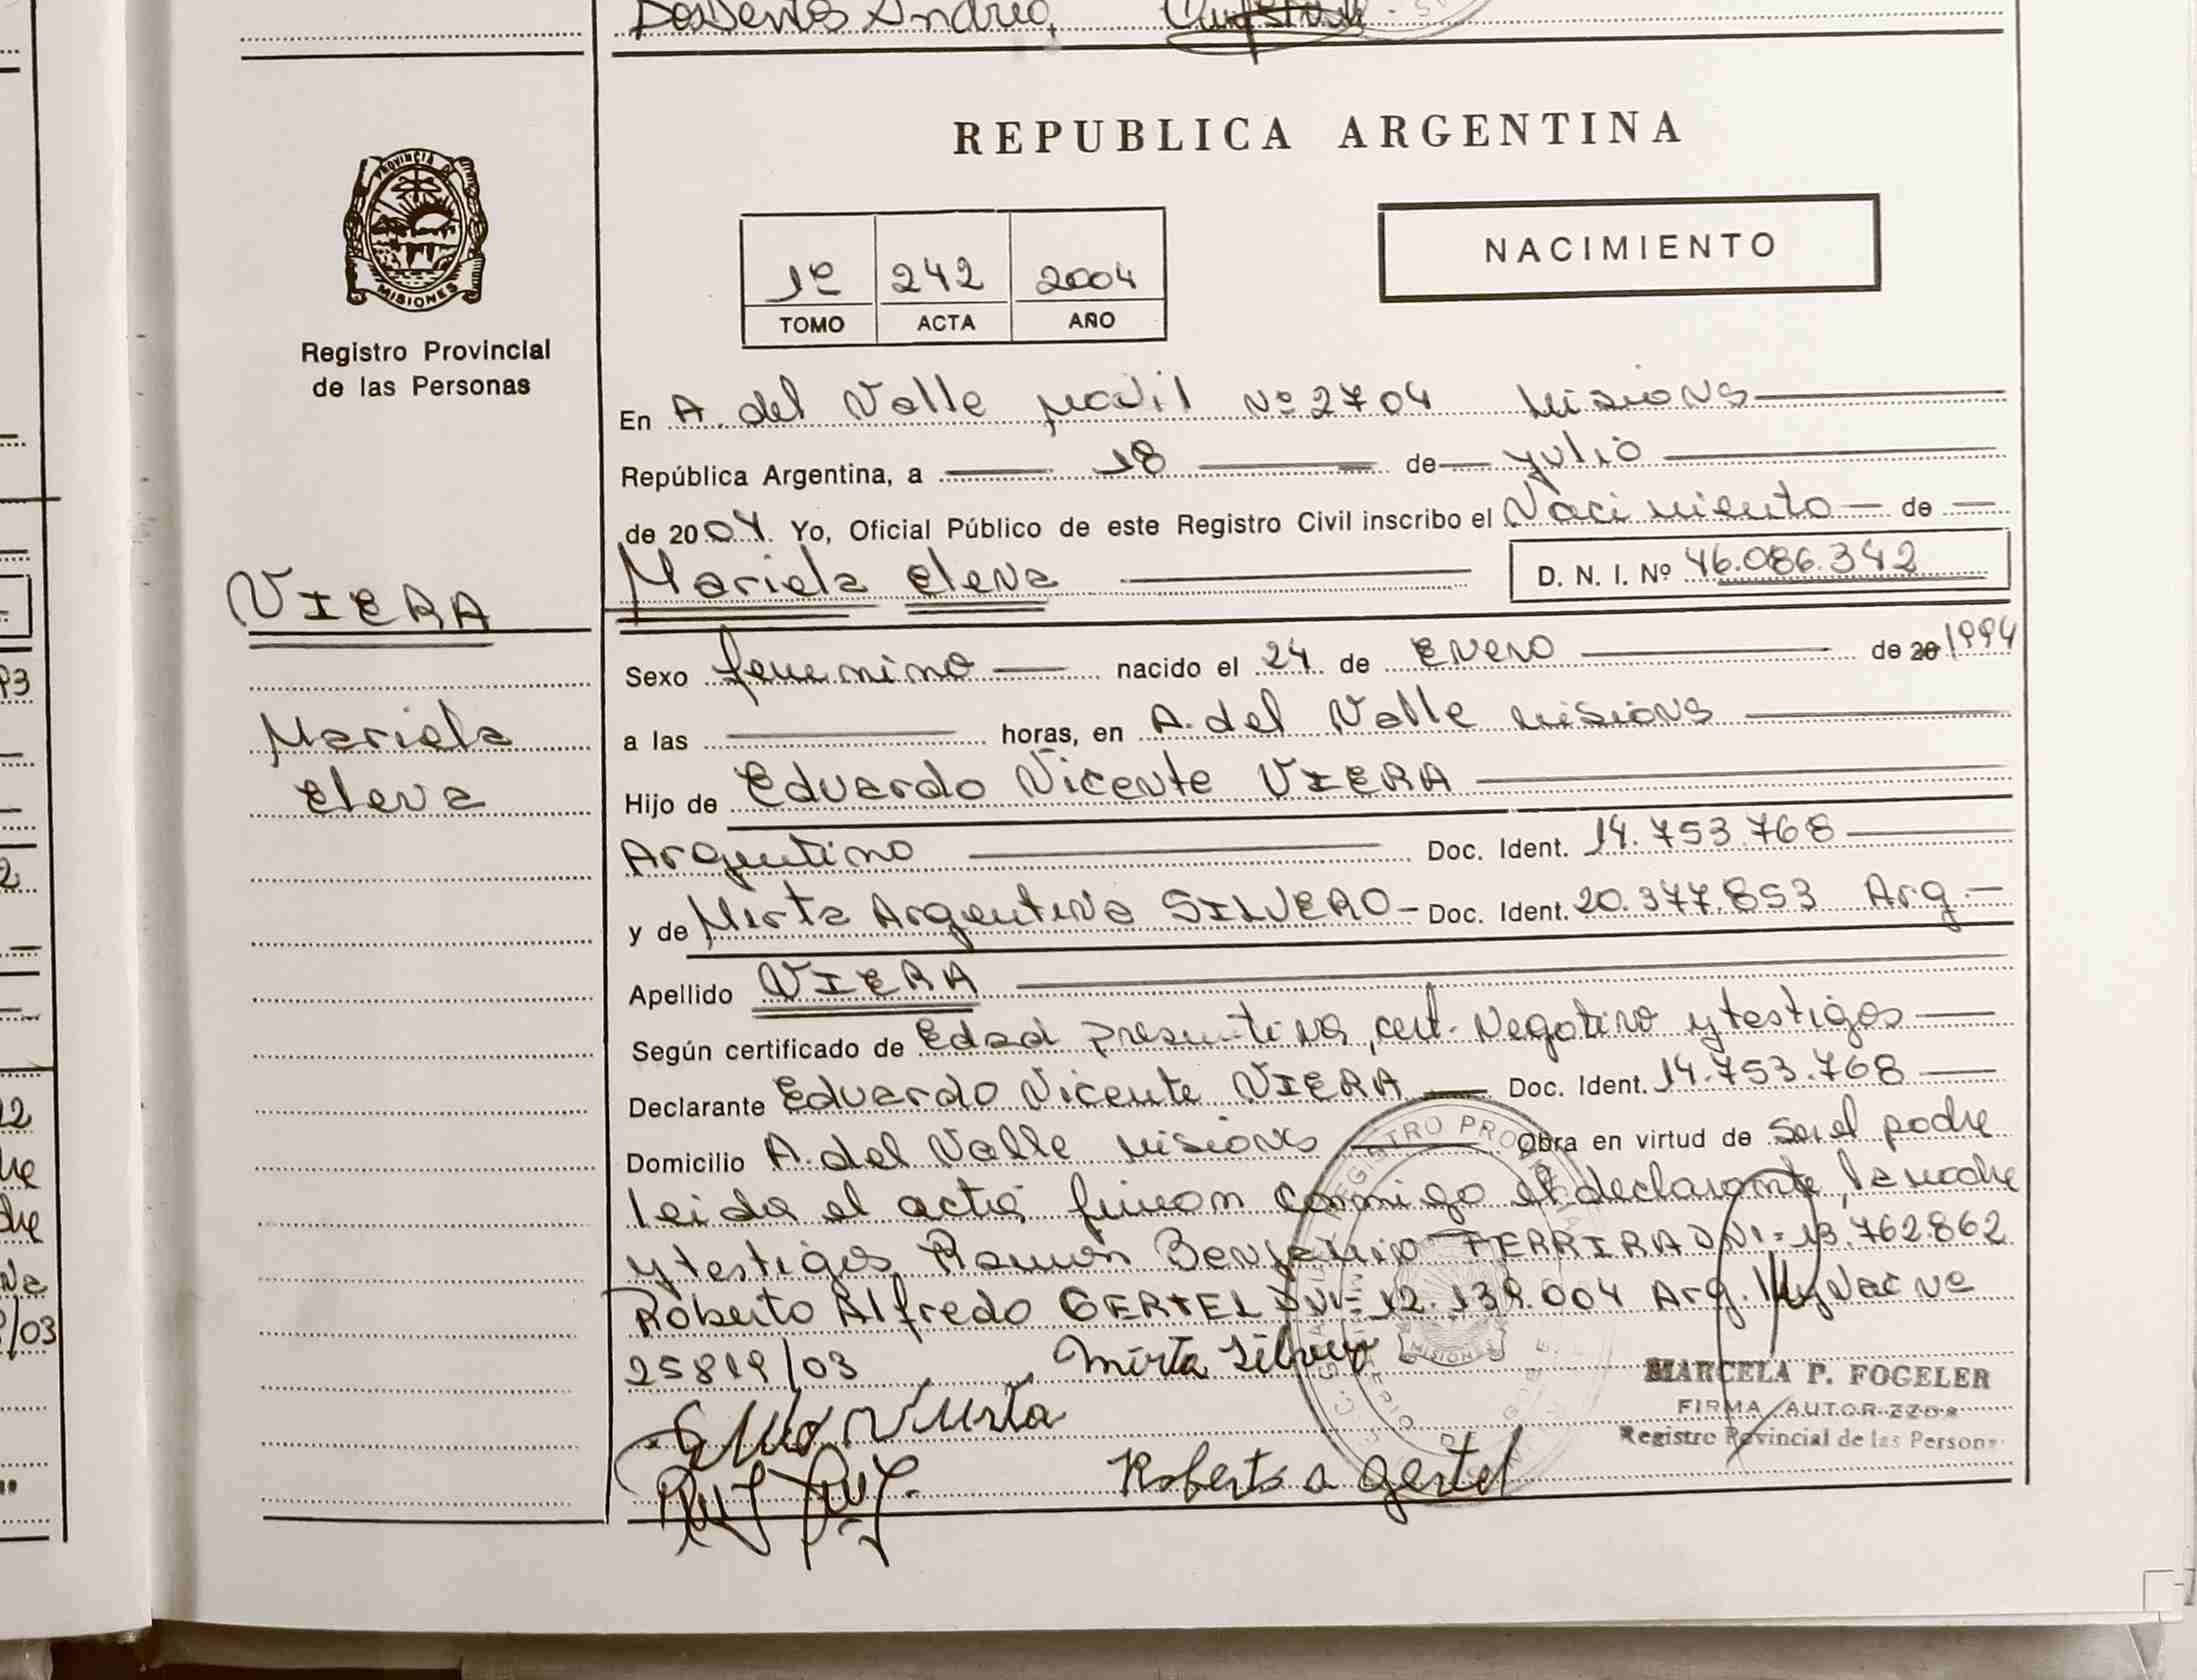 REPUBLICA ARGENTINA
PROVINCIA DE
MISIONES
Registro Provincial
de las Personas
NACIMIENTO
1º 242 2004
TOMO ACTA AÑO
En A. del Valle movil Nº 2704 Misions
República Argentina, a 18 de yulio
de 2004. Yo, Oficial Público de este Registro Civil inscribo el Nacimiento de
Mariela elena D. N. I. Nº 46.086.342
VIERA
Sexo femenino nacido el 24 de Enero de 20 1994
Mariela
elena
a las horas, en A. del Valle misions
Hijo de Eduardo Vicente VIERA
Argentino Doc. Ident. 14.753.768
y de Mirta Argentina SILVERO - Doc. Ident. 20.377.853 Arg.
Apellido VIERA
Según certificado de Edad presuntiva, cert. Negativo y testigos
Declarante Eduardo Vicente VIERA Doc. Ident. 14.753.768
Domicilio A. del Valle misions Obra en virtud de Ser el padre
leida el acta firman conmigo el declarante, la madre
y testigos Ramon Benjamin FERRIRA DNI = 13.762.862
Roberto Alfredo GERTEL DNI = 12.139.004 Arg. Ley Nac Nº
25819/03 Mirta Silvero
MARCELA P. FOGELER
FIRMA AUTORIZZDA
Registro Provincial de las Person
Roberto a gertel